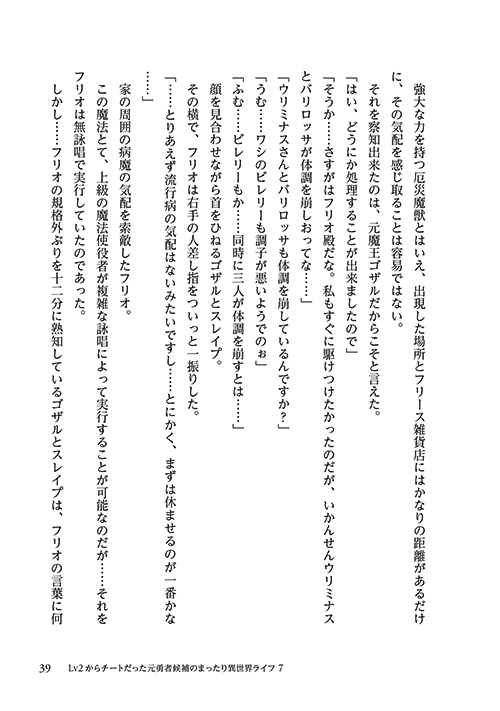 強大な力を持つ厄災魔獣とはいえ、出現した場所とフリース雑貨店にはかなりの距離があるだけ
に、その気配を感じ取ることは容易ではない。
それを察知出来たのは、元魔王ゴザルだからこそと言えた。
「はい、どうにか処理することが出来ましたので」
「そうか……さすがはフリオ殿だな。私もすぐに駆けつけたかったのだが、いかんせんウリミナス
とバリロッサが体調を崩しおってな……」
「ウリミナスさんとバリロッサも体調を崩しているんですか？」
「うむ……ワシのビレリーも調子が悪いようでのぉ」
「ふむ……ビレリーもか……同時に三人が体調を崩すとは……」
顔を見合わせながら首をひねるゴザルとスレイプ。
その横で、フリオは右手の人差し指をついっと一振りした。
「……とりあえず流行病の気配はないみたいですし……とにかく、まずは休ませるのが一番かな
……」
家の周囲の病魔の気配を索敵したフリオ。
この魔法とて、上級の魔法使役者が複雑な詠唱によって実行することが可能なのだが……それを
フリオは無詠唱で実行していたのであった。
しかし……フリオの規格外ぶりを十二分に熟知しているゴザルとスレイプは、フリオの言葉に何
39 Lv2からチートだった元勇者候補のまったり異世界ライフ 7